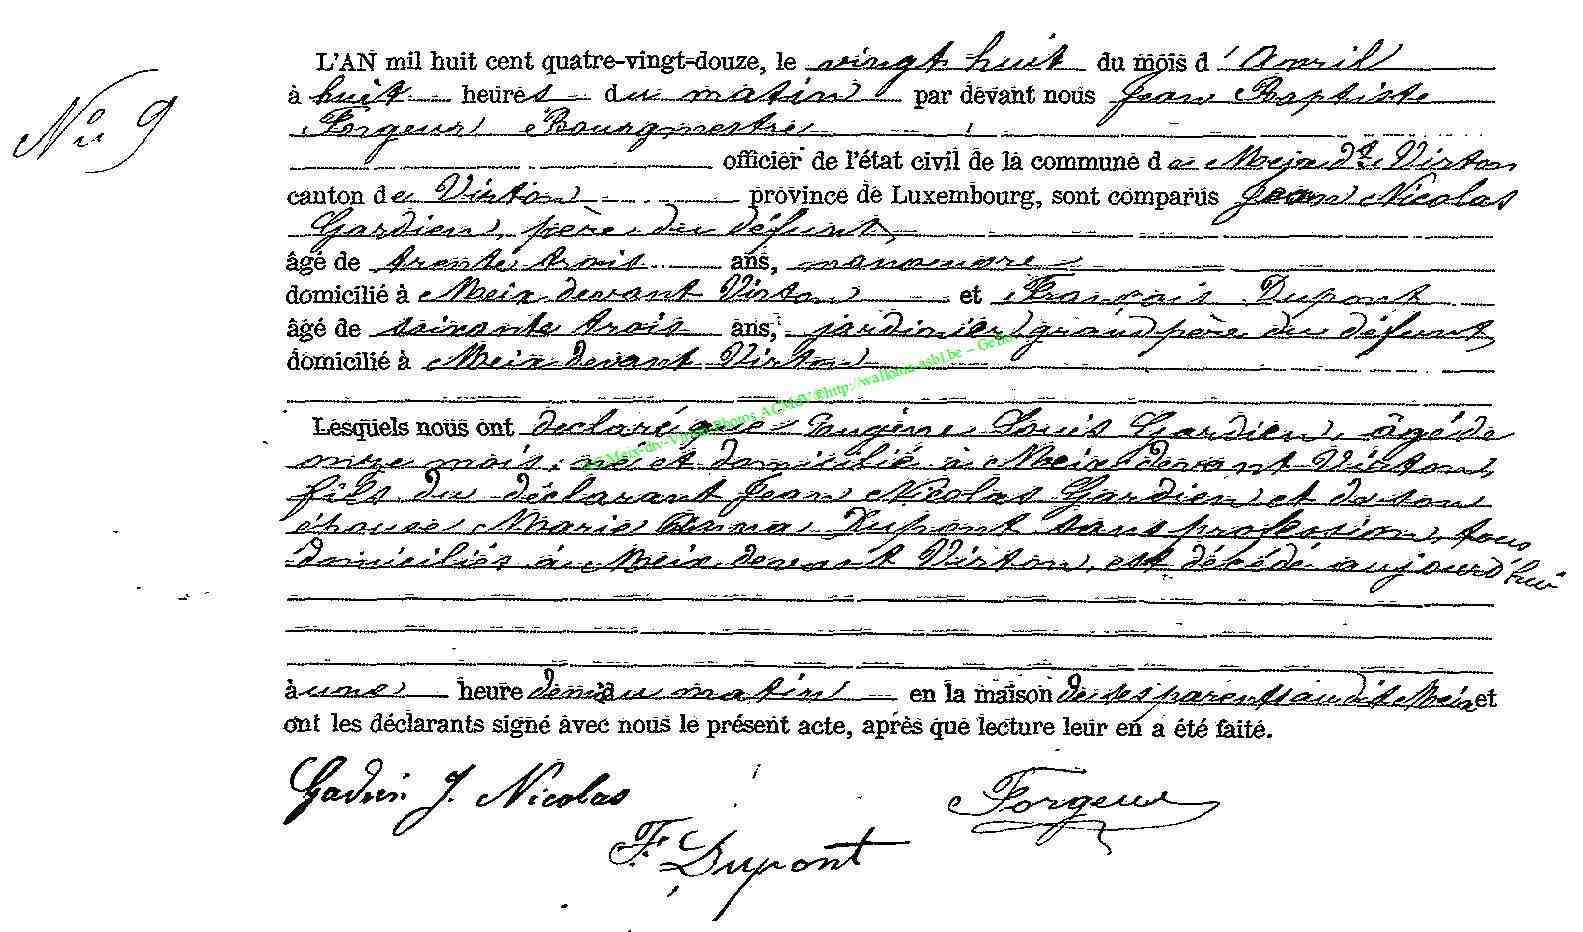 Nº 9
L'AN mil huit cent quatre-vingt-douze, le vingt huit du mois d'Avril
à huit heures du matin par devant nous Jean Baptiste
Forgeur Bourgmestre
officier de l'état civil de la commune de Meix dt Virton
canton de Virton province de Luxembourg, sont comparus Jean Nicolas
Gardien, père du défunt,
âgé de trente trois ans, manoeuvre
domicilié à Meix devant Virton et François Dupont
âgé de soixante trois ans, jardinier, grand père du défunt
domicilié à Meix devant Virton
Lesquels nous ont déclaré que Eugène Louis Gardien, âgé de
onze mois, né et domicilié à Meix devant Virton,
fils du déclarant Jean Nicolas Gardien et de son
épouse Marie Anna Dupont sans profession, tous
domiciliés à Meix devant Virton, est décédé aujourd'hui
à une heure demi du matin en la maison de ses parents audit Meix et
ont les déclarants signé avec nous le présent acte, après que lecture leur en a été faite.
Gadien J. Nicolas
Forgeur
F. Dupont
Meix-dvt-Virton Photos ACMDV ©http://walkina-asbl.be -